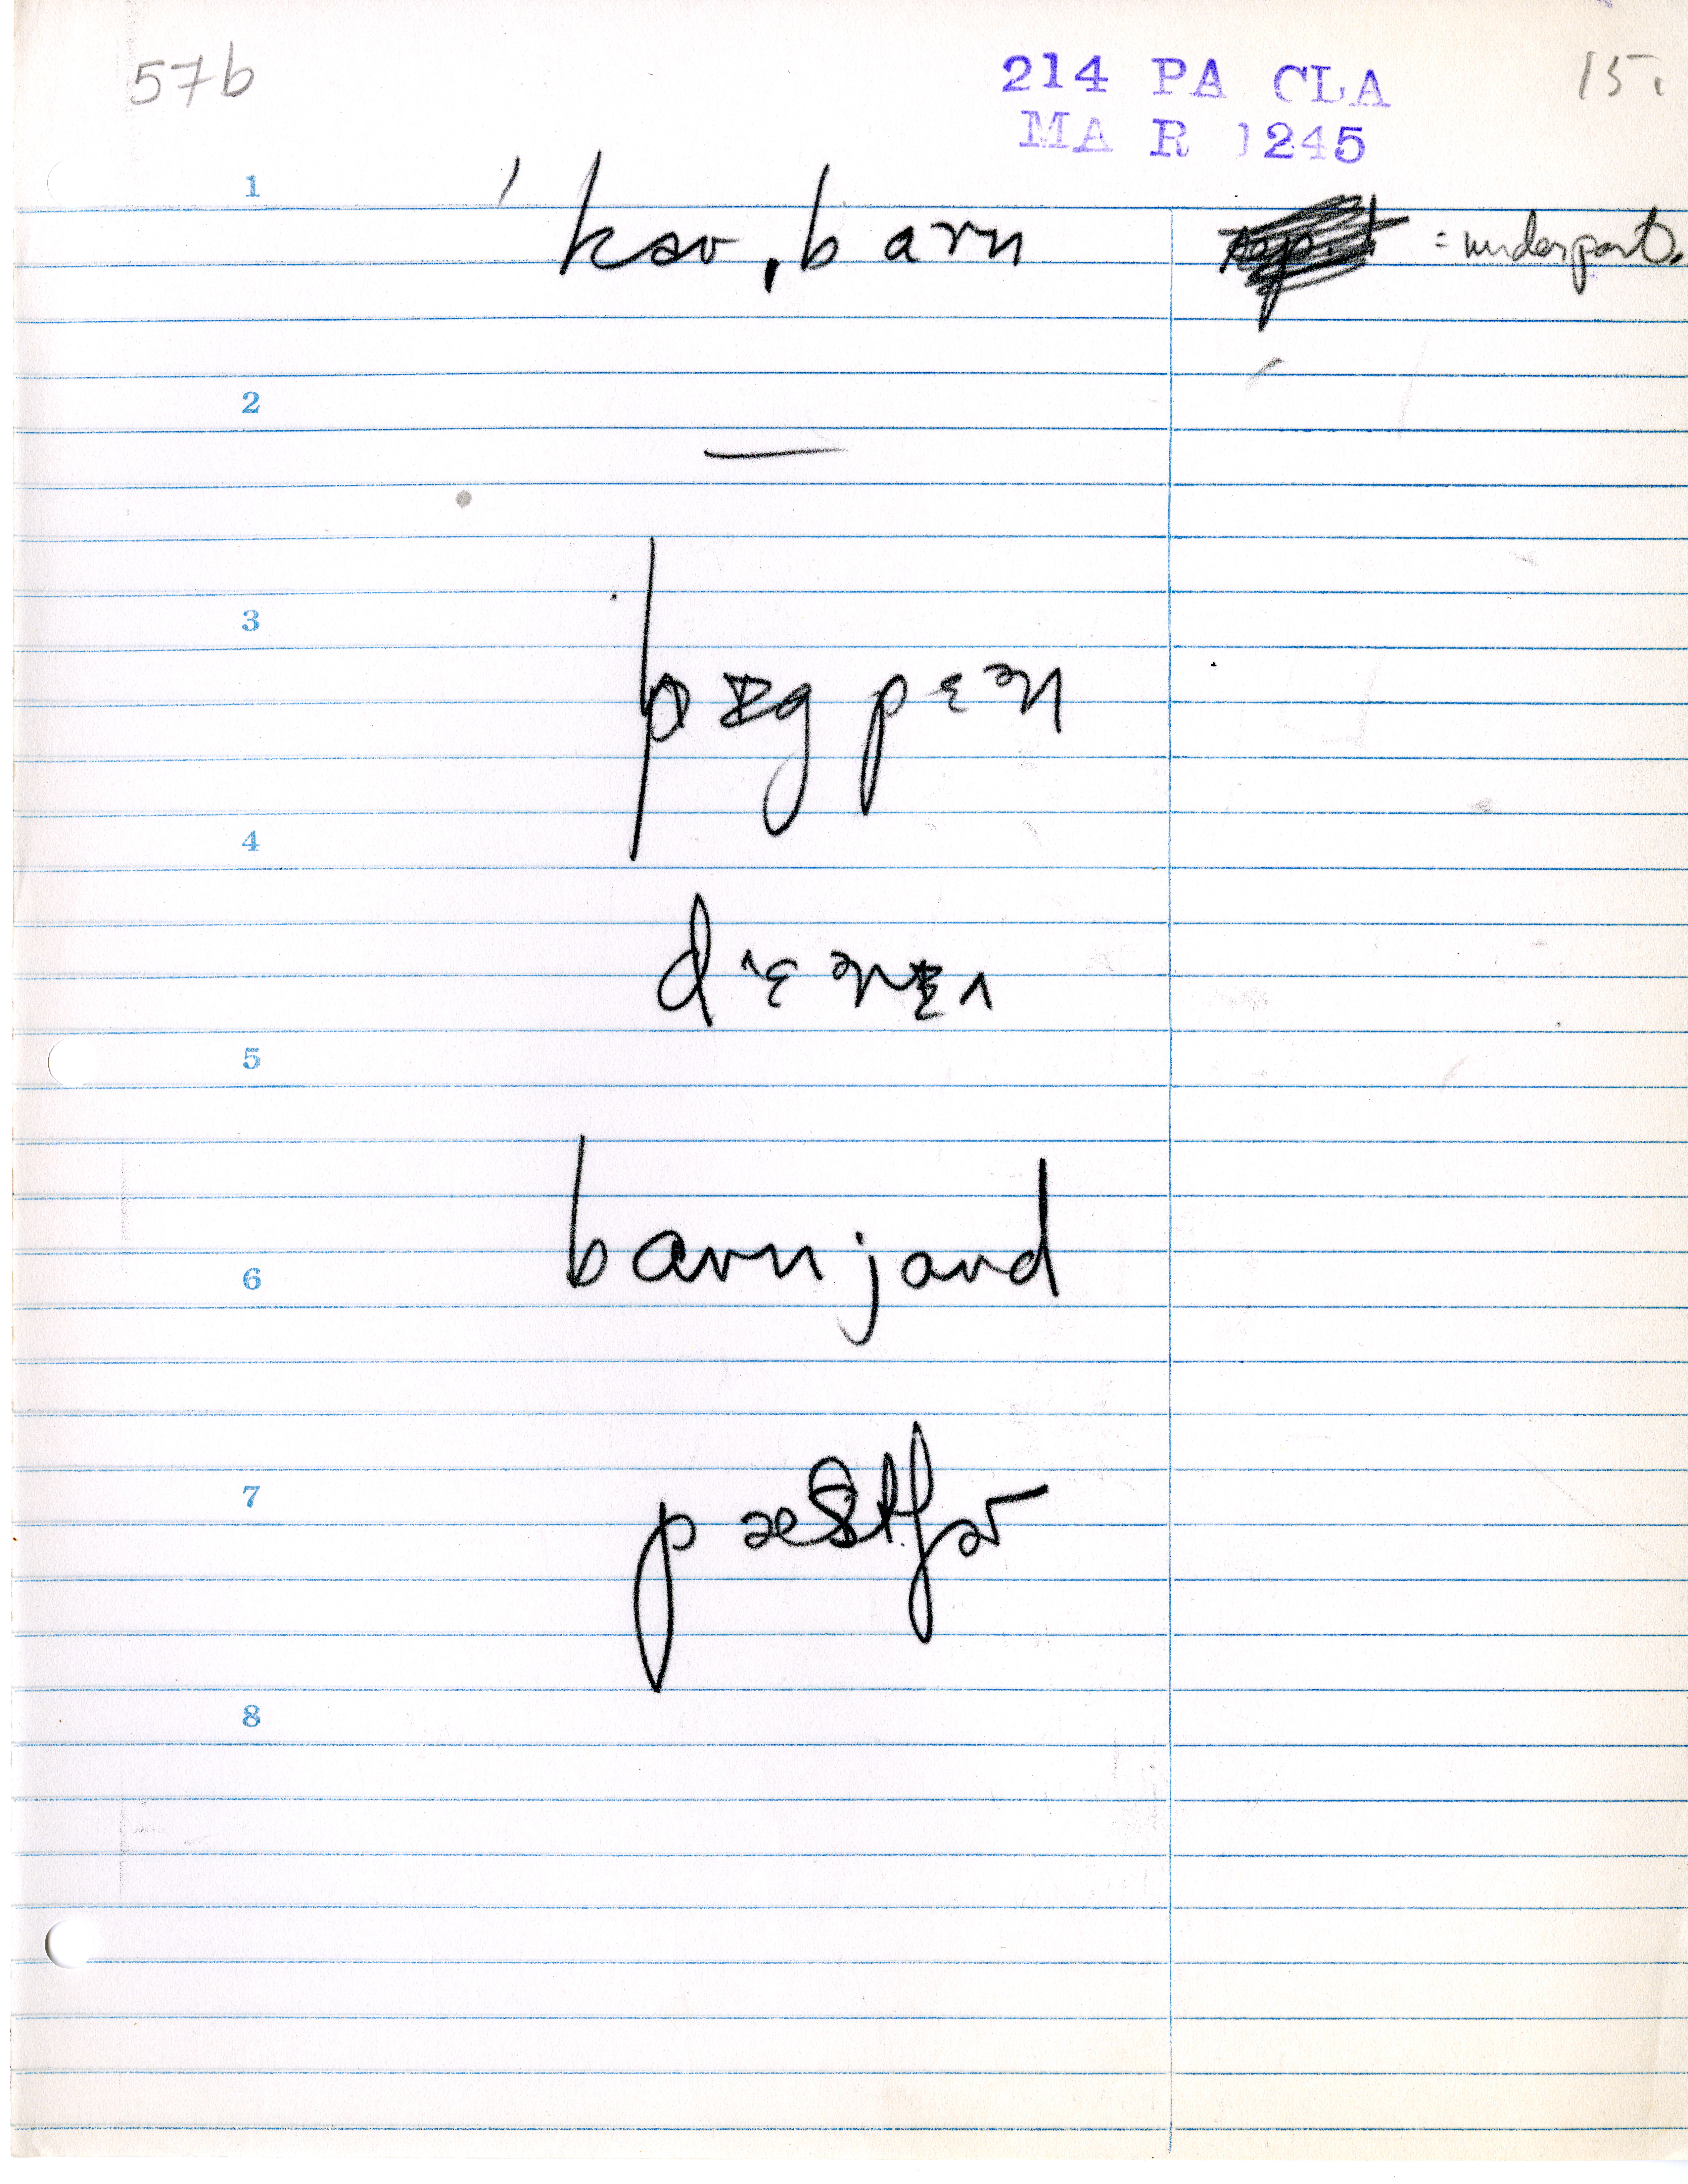 57b
214 PA CLA
MA R 1245
15.
1
ˈkaʊˌbarn = underpart.
2
—
3
pɪgpɛən
4
5
barnjard
6
7
pæstʃɚ
8